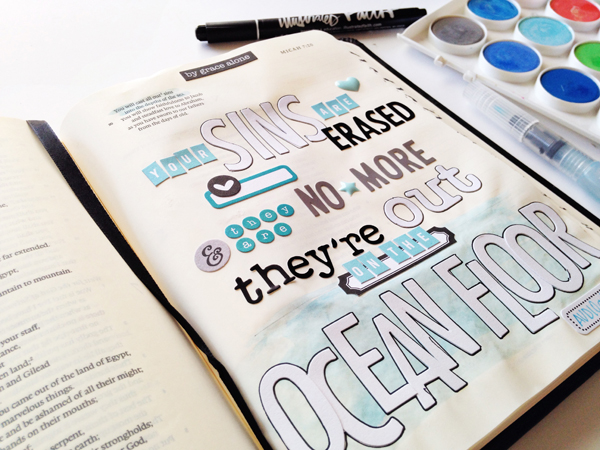 by grace alone
MICAH 7:20
You will cast all our sins
into the depths of the sea.
You will show faithfulness to Jacob
and steadfast love to Abraham,
as you have sworn to our fathers
from the days of old.
YOUR SINS ARE
ERASED
& they are NO MORE
they're out
ON THE
OCEAN FLOOR
AUDIO
far extended.
gypt,
untain to mountain.
your staff,
tance,
en land;
n and Gilead
ou came out of the land of Egypt,
marvelous things.
and be ashamed of all their might;
hands on their mouths;
serpent,
earth;
strongholds;
God,